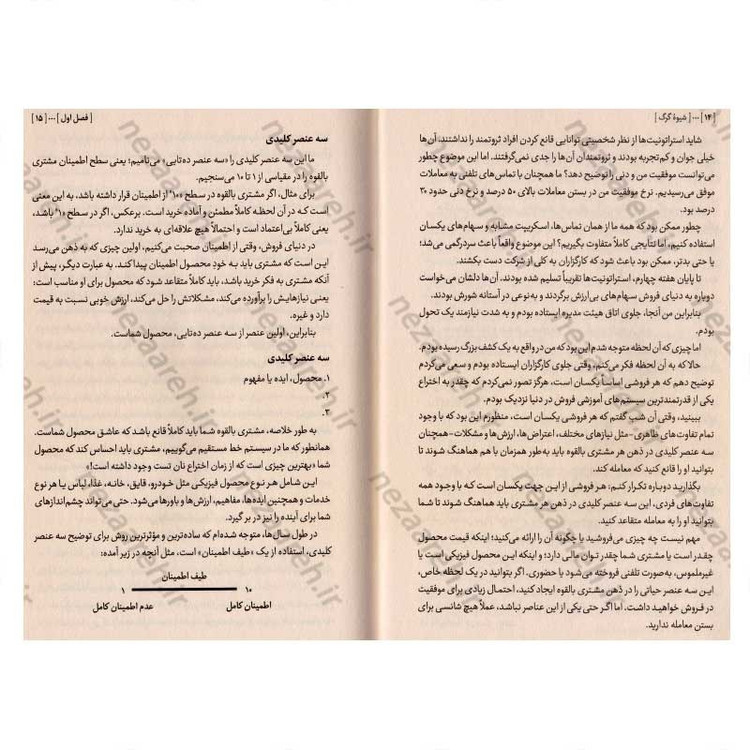 [ ۱۴ ] --- [ شیوهٔ گرگ ]
شاید استراتونیت‌ها از نظر شخصیتی توانایی قانع کردن افراد ثروتمند را نداشتند؛ آن‌ها
خیلی جوان و کم‌تجربه بودند و ثروتمندان آن‌ها را جدی نمی‌گرفتند. اما این موضوع چطور
می‌توانست موفقیت من و دنی را توضیح دهد؟ ما همچنان با تماس‌های تلفنی به معاملات
موفق می‌رسیدیم. نرخ موفقیت من در بستن معاملات بالای ۵۰ درصد و نرخ دنی حدود ۳۰
درصد بود.
چطور ممکن بود که همه ما از همان تماس‌ها، اسکریپت مشابه و سهام‌های یکسان
استفاده کنیم، اما نتایجی کاملاً متفاوت بگیریم؟ این موضوع واقعاً باعث سردرگمی می‌شد؛
یا حتی بدتر، ممکن بود باعث شود که کارگزاران به کلی از شرکت دست بکشند.
تا پایان هفته چهارم، استراتونیت‌ها تقریباً تسلیم شده بودند. آن‌ها دلشان می‌خواست
دوباره به دنیای فروش سهام‌های بی‌ارزش برگردند و به‌نوعی در آستانه شورش بودند.
بنابراین من آنجا، جلوی اتاق هیئت مدیره ایستاده بودم و به شدت نیازمند یک تحول
بودم.
اما چیزی که آن لحظه متوجه شدم این بود که من در واقع به یک کشف بزرگ رسیده بودم.
حالا که به آن لحظه فکر می‌کنم، وقتی جلوی کارگزاران ایستاده بودم و سعی می‌کردم
توضیح دهم که هر فروشی اساساً یکسان است، هرگز تصور نمی‌کردم که چقدر به اختراع
یکی از قدرتمندترین سیستم‌های آموزشی فروش در دنیا نزدیک بودم.
ببینید، وقتی آن شب گفتم که هر فروشی یکسان است، منظورم این بود که با وجود
تمام تفاوت‌های ظاهری-مثل نیازهای مختلف، اعتراض‌ها، ارزش‌ها و مشکلات-همچنان
سه عنصر کلیدی در ذهن هر مشتری بالقوه باید به‌طور همزمان با هم هماهنگ شوند تا
بتوانید او را قانع کنید که معامله کند.
بگذارید دوباره تکرار کنم: هر فروشی از این جهت یکسان است که با وجود همه
تفاوت‌های فردی، این سه عنصر کلیدی در ذهن هر مشتری باید هماهنگ شوند تا شما
بتوانید او را به معامله متقاعد کنید.
مهم نیست چه چیزی می‌فروشید یا چگونه آن را ارائه می‌کنید؛ اینکه قیمت محصول
چقدر است یا مشتری شما چقدر توان مالی دارد؛ و اینکه این محصول فیزیکی است یا
غیرملموس، به‌صورت تلفنی فروخته می‌شود یا حضوری. اگر بتوانید در یک لحظه خاص،
این سه عنصر حیاتی را در ذهن مشتری بالقوه ایجاد کنید، احتمال زیادی برای موفقیت
در فروش خواهید داشت. اما اگر حتی یکی از این عناصر نباشد، عملاً هیچ شانسی برای
بستن معامله ندارید.
[ فصل اول ] --- [ ۱۵ ]
سه عنصر کلیدی
ما این سه عنصر کلیدی را «سه عنصر ده‌تایی» می‌نامیم؛ یعنی سطح اطمینان مشتری
بالقوه را در مقیاسی از ۱ تا ۱۰ می‌سنجیم.
برای مثال، اگر مشتری بالقوه در سطح «۱۰» از اطمینان قرار داشته باشد، به این معنی
است که در آن لحظه کاملاً مطمئن و آماده خرید است. برعکس، اگر در سطح «۱» باشد،
یعنی کاملاً بی‌اعتماد است و احتمالاً هیچ علاقه‌ای به خرید ندارد.
در دنیای فروش، وقتی از اطمینان صحبت می‌کنیم، اولین چیزی که به ذهن می‌رسد
این است که مشتری باید به خودِ محصول اطمینان پیدا کند. به عبارت دیگر، پیش از
آنکه مشتری به فکر خرید باشد، باید کاملاً متقاعد شود که محصول برای او مناسب است؛
یعنی نیازهایش را برآورده می‌کند، مشکلاتش را حل می‌کند، ارزش خوبی نسبت به قیمت
دارد و غیره.
بنابراین، اولین عنصر از سه عنصر ده‌تایی، محصول شماست.
سه عنصر کلیدی
۱. محصول، ایده یا مفهوم
۲.
۳.
به طور خلاصه، مشتری بالقوه شما باید کاملاً قانع باشد که عاشق محصول شماست.
همانطور که ما در سیستم خط مستقیم می‌گوییم، مشتری باید احساس کند که محصول
شما «بهترین چیزی است که از زمان اختراع نان تست وجود داشته است!»
این شامل هر نوع محصول فیزیکی مثل خودرو، قایق، خانه، غذا، لباس یا هر نوع
خدمات و همچنین ایده‌ها، مفاهیم، ارزش‌ها و باورها می‌شود. حتی می‌تواند چشم‌اندازهای
شما برای آینده را نیز در بر گیرد.
در طول سال‌ها، متوجه شده‌ام که ساده‌ترین و مؤثرترین روش برای توضیح سه عنصر
کلیدی، استفاده از یک «طیف اطمینان» است، مثل آنچه در زیر آمده:
طیف اطمینان
۱۰ ۱
اطمینان کامل عدم اطمینان کامل
nezaareh.ir